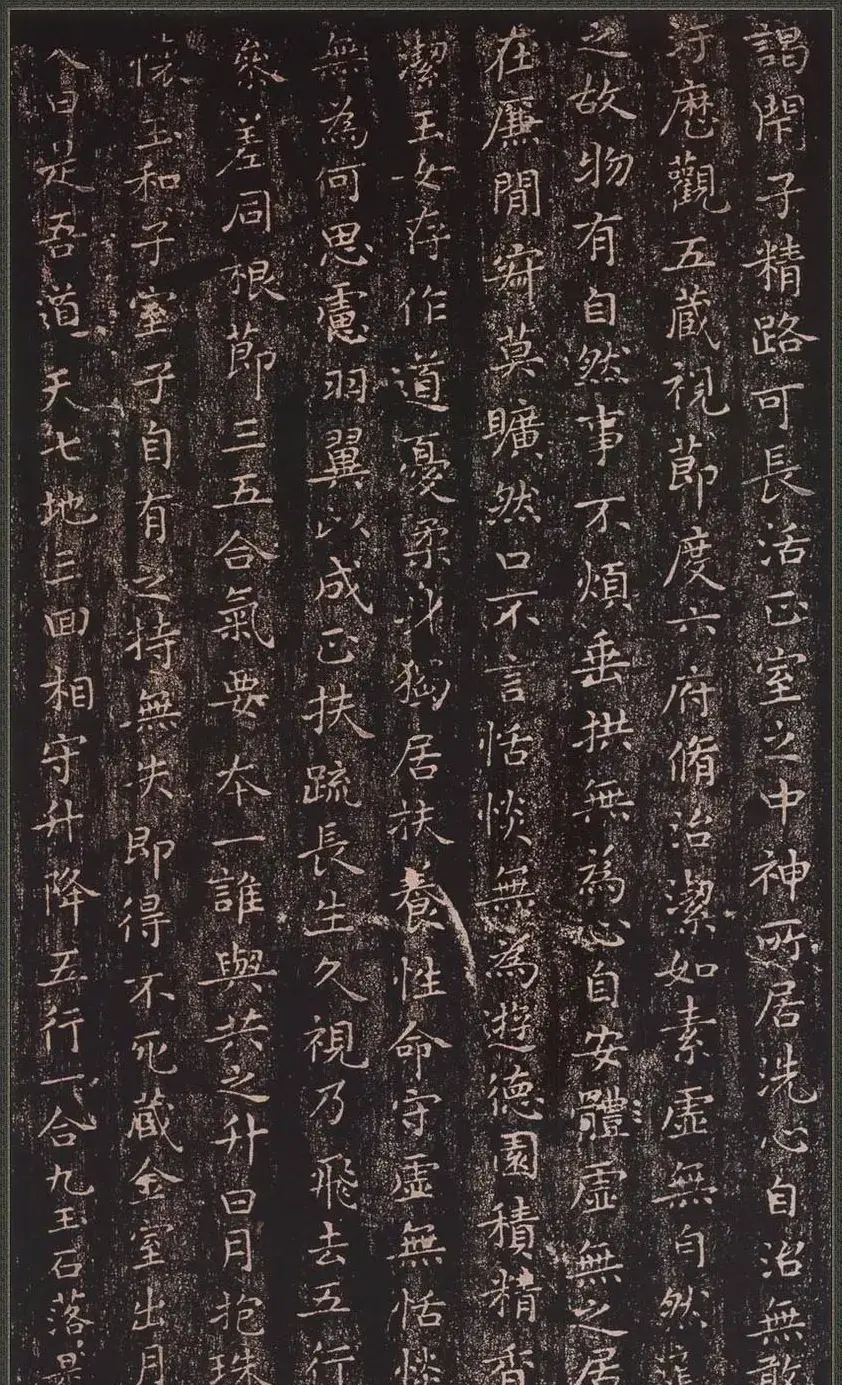 謁門子精路可長活正室之中神所居洗心自治無敢
汙歷觀五藏視節度六府脩治潔如素虛無自然道
之故物有自然事不煩垂拱無為心自安體虛無之居
在廉間寂莫曠然口不言恬惔無為遊德園積精香
潔玉女存作道憂柔身獨居扶養性命守虛無恬惔
無為何思慮羽翼以成正扶疏長生久視乃飛去五行
參差同根節三五合氣要本一誰與共之升日月抱珠
懷玉和子室子自有之持無失即得不死藏金室出月
入日是吾道天七地三回相守升降五行一合九玉石落是